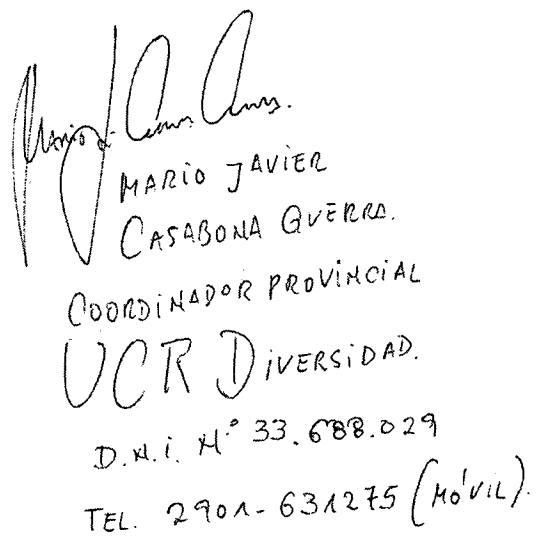 MARIO JAVIER
CASABONA GUERRA.
COORDINADOR PROVINCIAL
UCR DIVERSIDAD.
D.N.I. Nº 33.688.029
TEL. 2901-631275 (MÓVIL).